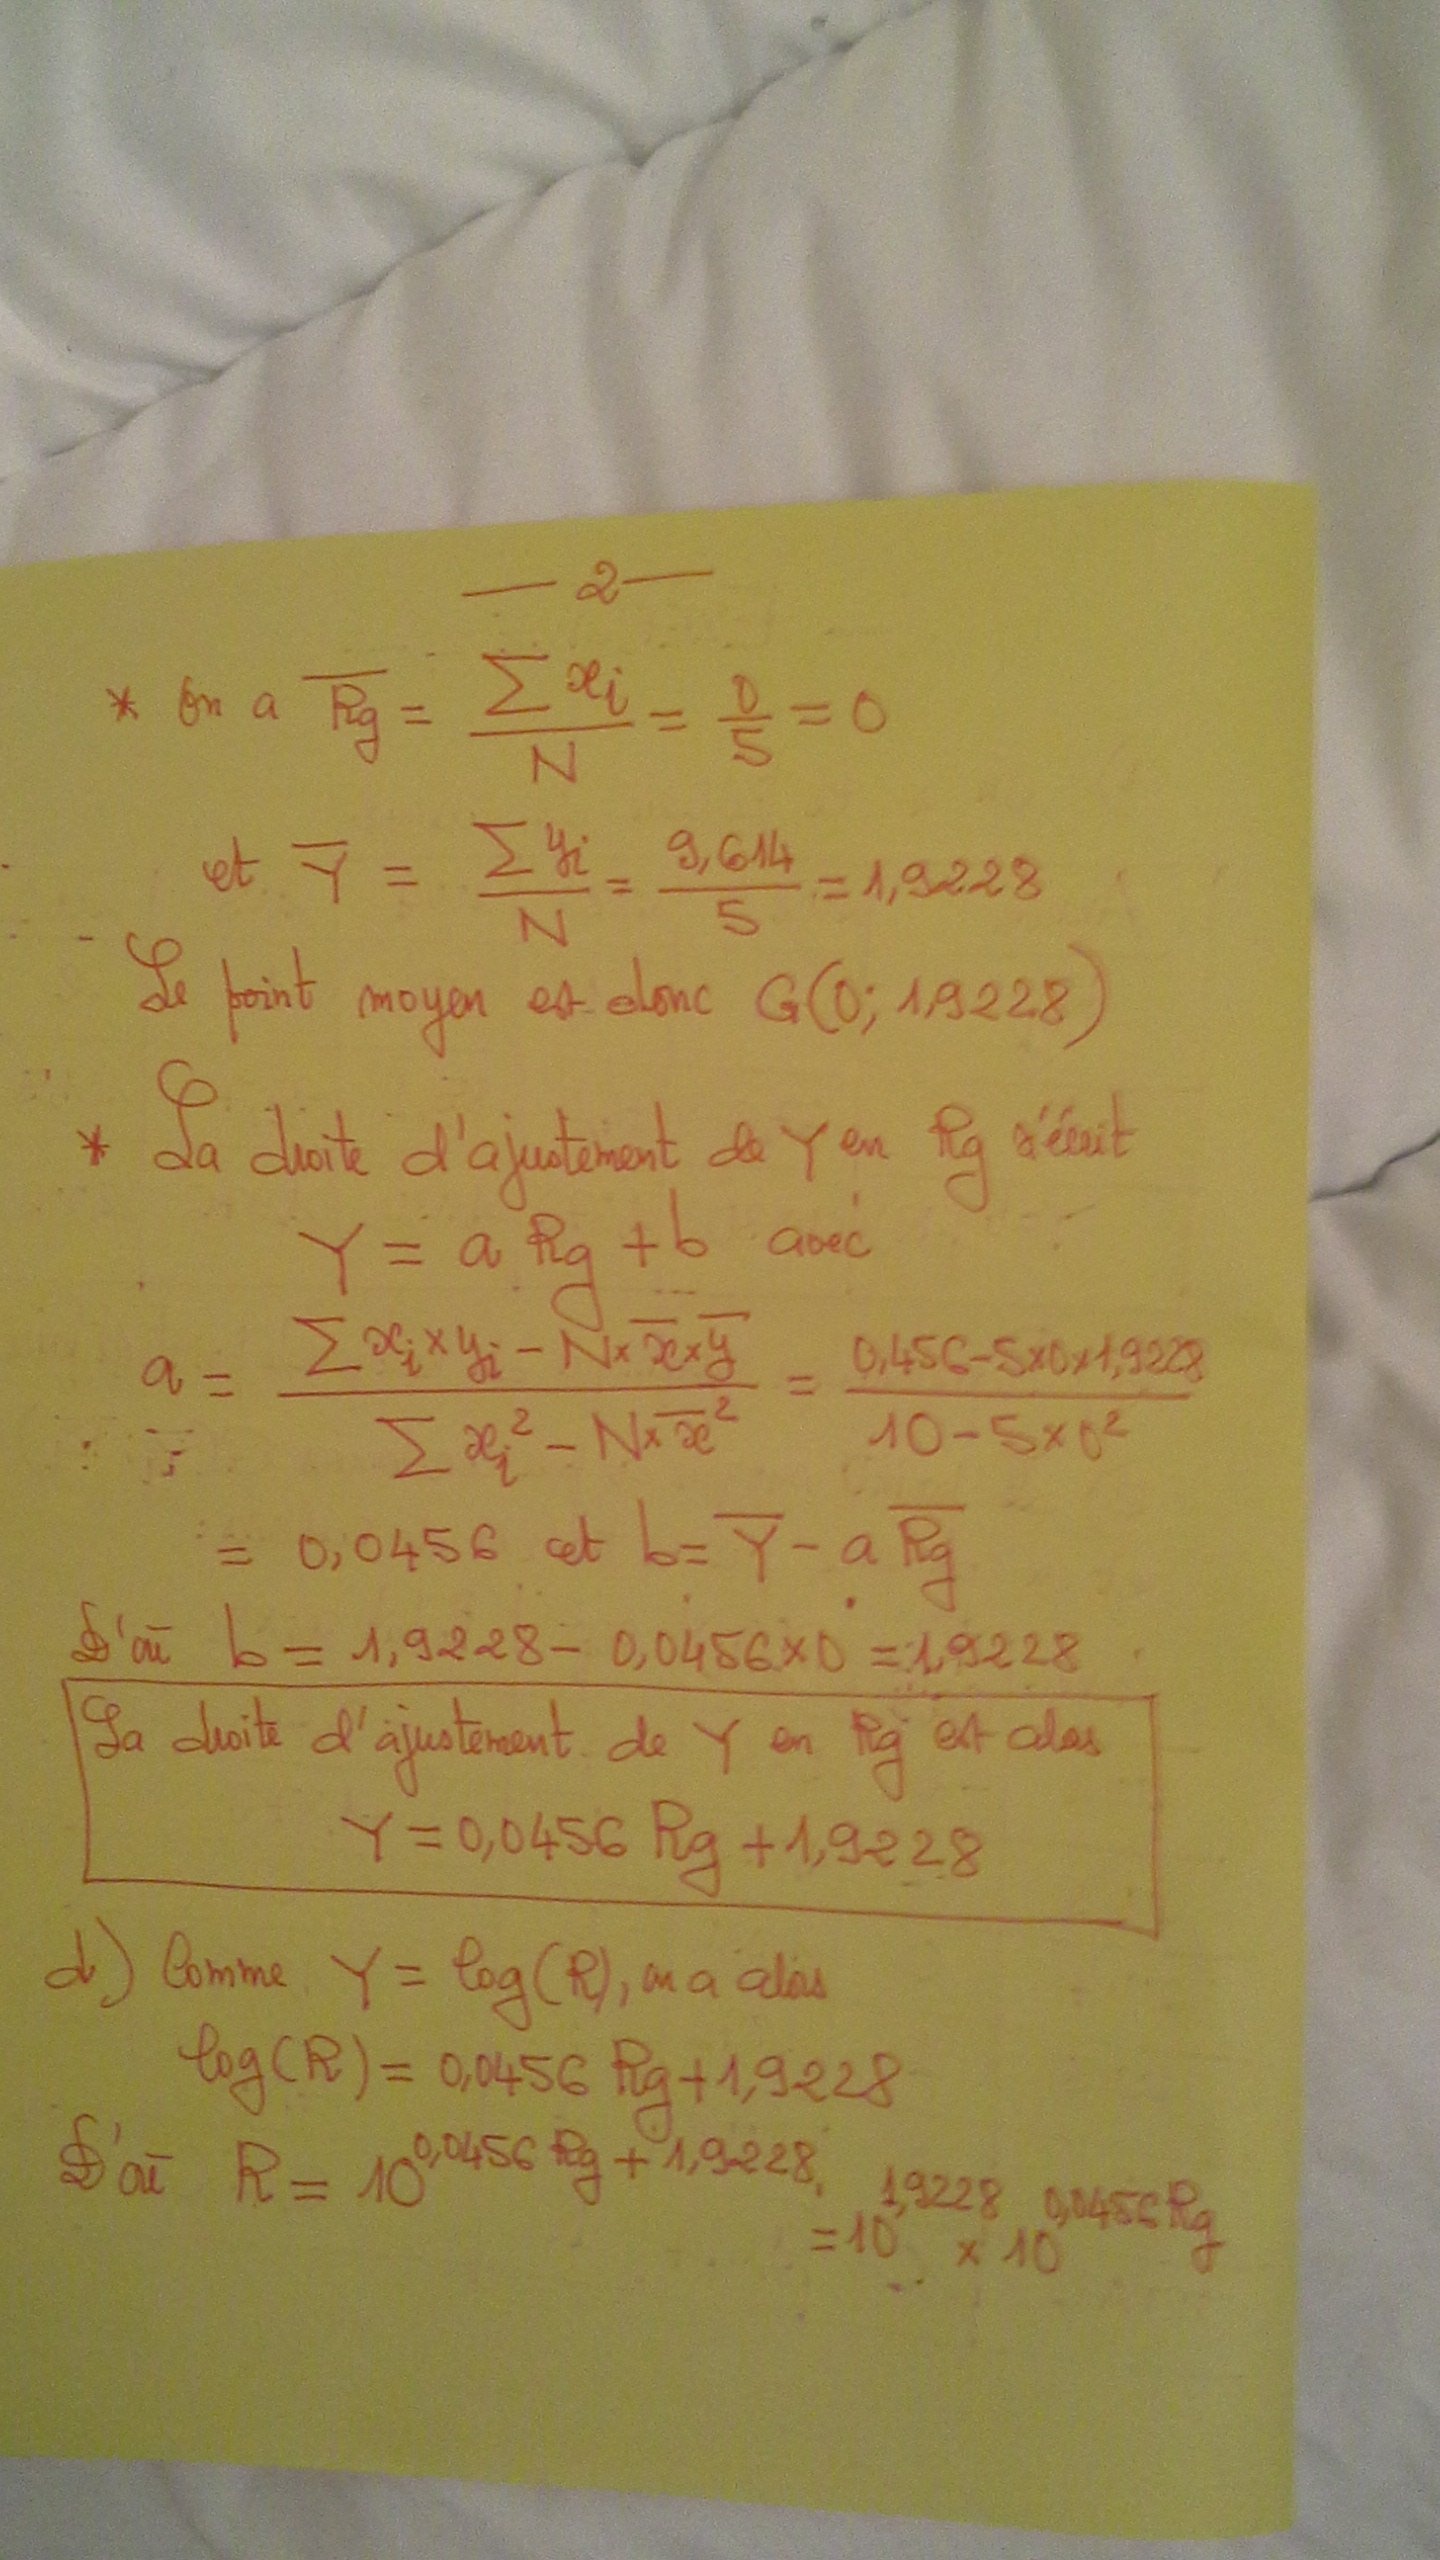 — 2 —
* On a R̅g̅ = ∑ xi / N = 0/5 = 0
et Y̅ = ∑ yi / N = 9,614 / 5 = 1,9228
Le point moyen est donc G(0; 1,9228)
* La droite d'ajustement de Y en Rg s'écrit
Y = a Rg + b avec
a = (∑ xi × yi - N × x̅ × y̅) / (∑ xi² - N × x̅²) = (0,456 - 5×0×1,9228) / (10 - 5×0²)
= 0,0456 et b = Y̅ - a R̅g̅
D'où b = 1,9228 - 0,0456×0 = 1,9228
La droite d'ajustement de Y en Rg est alors
Y = 0,0456 Rg + 1,9228
d) Comme Y = log(R), on a alors
log(R) = 0,0456 Rg + 1,9228
D'où R = 10^(0,0456 Rg + 1,9228)
= 10^(1,9228) × 10^(0,0456 Rg)